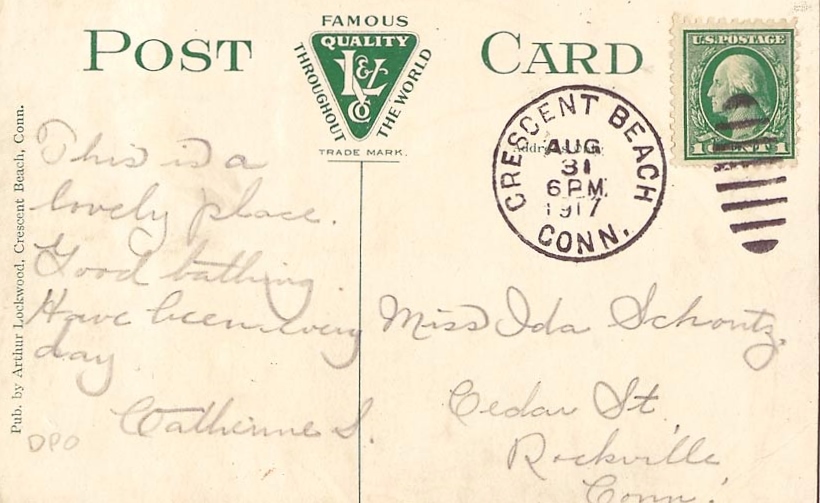 POST CARD
FAMOUS
QUALITY
THROUGHOUT THE WORLD
L & V Co
TRADE MARK.
U.S. POSTAGE
1 CENT 1
CRESCENT BEACH
AUG
31
6 PM
1917
CONN.
Pub. by Arthur Lockwood, Crescent Beach, Conn.
This is a
lovely place.
Good bathing.
Have been every
day
Catherine S.
DPO
Miss Ida Schontz.
Cedar St.
Rockville
Conn.